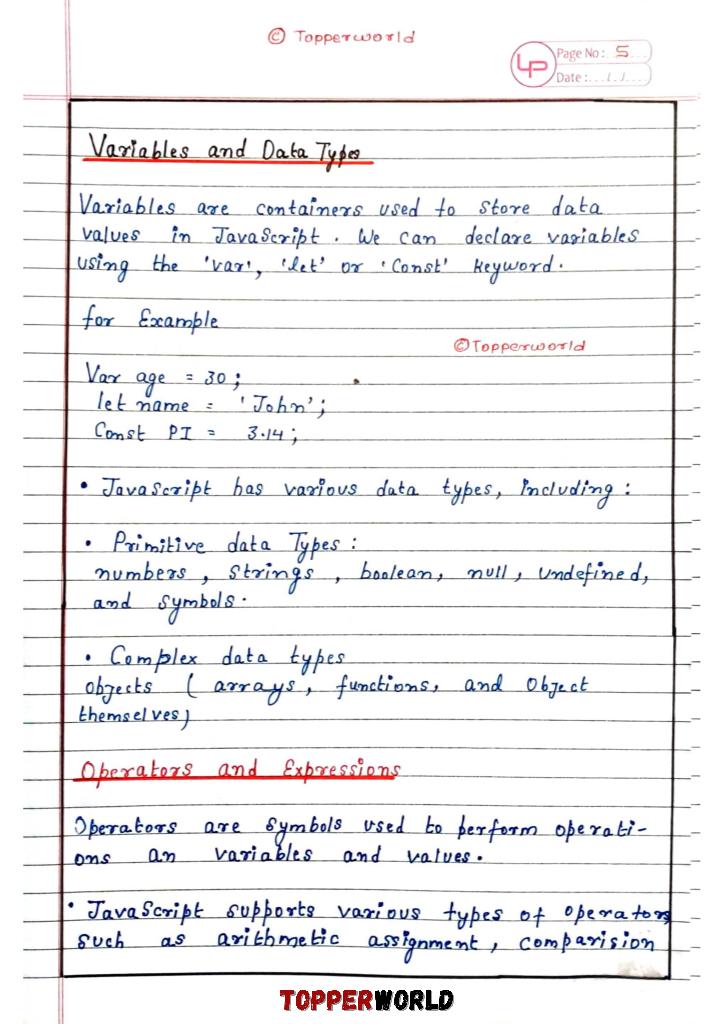 © Topperworld
LP
Page No: 5
Date: / /
Variables and Data Types
Variables are containers used to store data
values in JavaScript. We can declare variables
using the 'var', 'let' or 'Const' keyword.
for Example
© Topperworld
Var age = 30;
let name = 'John';
Const PI = 3.14;
• JavaScript has various data types, Including:
• Primitive data Types:
numbers, Strings, boolean, null, undefined,
and symbols.
• Complex data types
objects (arrays, functions, and Object
themselves)
Operators and Expressions
Operators are symbols used to perform operati-
ons an variables and values.
• JavaScript supports various types of operators
such as arithmetic assignment, comparision
TOPPERWORLD